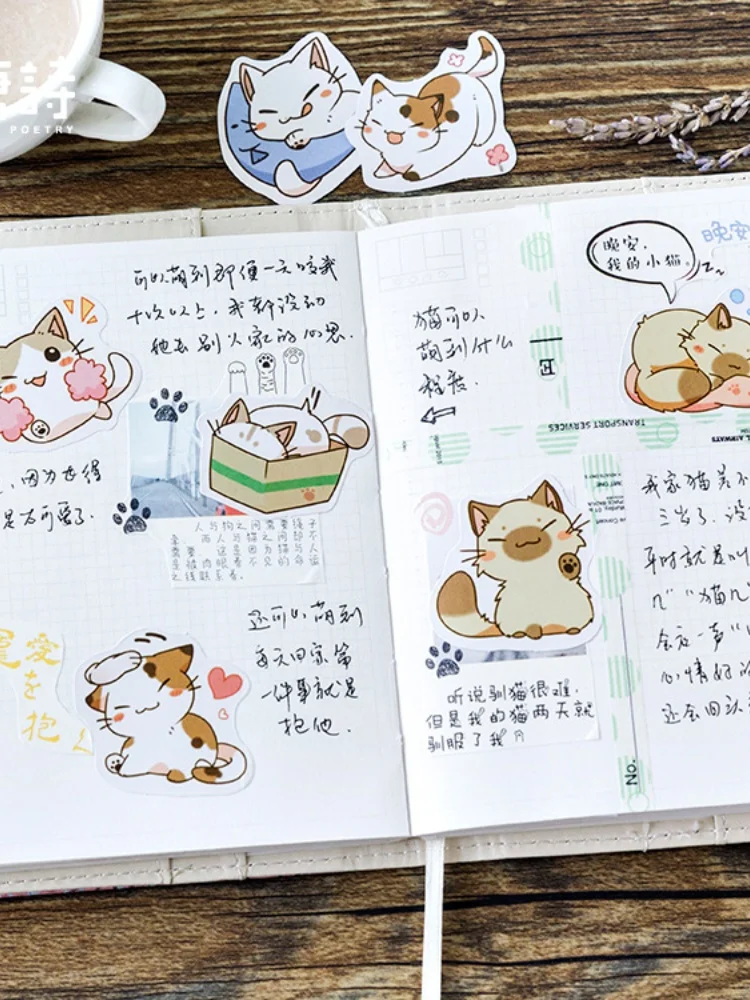 詩
POETRY
可以萌到即便一天咬我
十次以上，我都没动
她去别人家的心思.
，因为它得
是太可爱了.
人与狗之间需要绳子
牵，而人与猫之间却不
需要，这是因为猫与人
是被肉眼看不见的命运
之线联系着。
还可以萌到
每天回家第
一件事就是
抱他.
愛
を
抱
猫可以
萌到什么
程度.
晚安，
我的小猫。
晚安
z
TRANSPORT SERVICES
AIRWAYS
E
听说驯猫很难，
但是我的猫两天就
驯服了我
No.
我家猫差不
三岁了，没
平时就是叫
儿""猫儿"
会在一声"
心情好的
还会回头